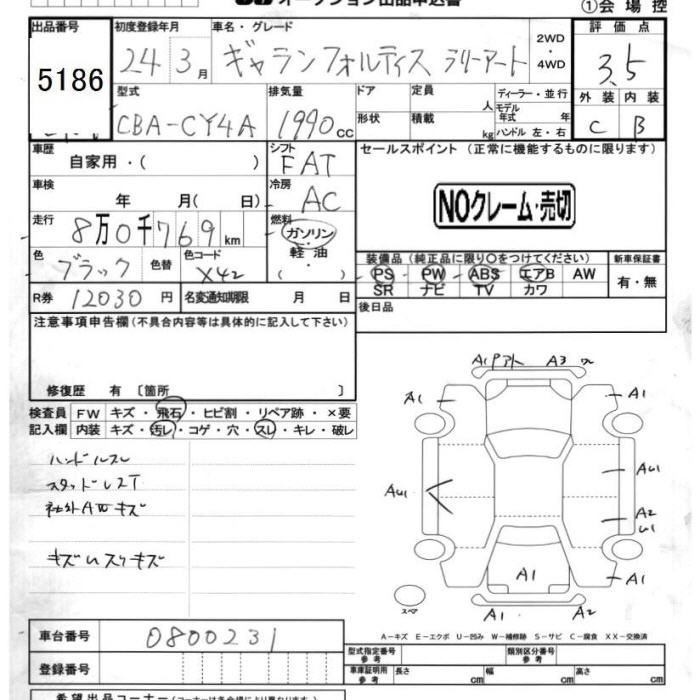 オークション出品申込書
①会場控
出品番号 初度登録年月 車名・グレード 評価点
5186 24年3月 ギャランフォルティス ラリーアート 2WD・4WD 3.5
型式 排気量 ドア 定員 人 ディーラー・並行 外装 内装
CBA-CY4A 1990cc 形状 積載 kg モデル年式 年 ハンドル 左・右 C B
車歴 自家用・( ) シフト FAT セールスポイント (正常に機能するものに限ります)
車検 年 月( 日) 冷房 AC
NOクレーム・売切
走行 8万0千769km 燃料 ガソリン・軽油・( )
色 ブラック 色替 色コード X42
装備品 (純正品に限り○をつけてください) 新車保証書
PS PW ABS エアB AW 有・無
SR ナビ TV カワ
R券 12030円 名変通知期限 月 日 後日品
注意事項申告欄 (不具合内容等は具体的に記入して下さい)
修復歴 有 〔箇所 〕
検査員 FW キズ・飛石・ヒビ割・リペア跡・×要
記入欄 内装 キズ・汚レ・コゲ・穴・スレ・キレ・破レ
ハンドルスレ
スタッドレスT
社外AWキズ
キズUスリキズ
A1 Pアト A3 W
A1 A1
AU1 AU1
A2
U1
A1 A1
スペア A1 A2
A-キズ E-エクボ U-凹み W-補修跡 S-サビ C-腐食 XX-交換済
車台番号 0800231
型式指定番号 参考 類別区分番号 参考
登録番号 車庫証明用 参考 長さ cm 幅 cm 高さ cm
希望出品コーナー